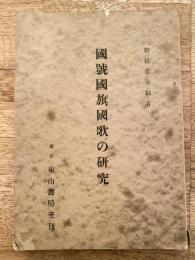 國號國旗國歌の研究
東京 東山書房発刊